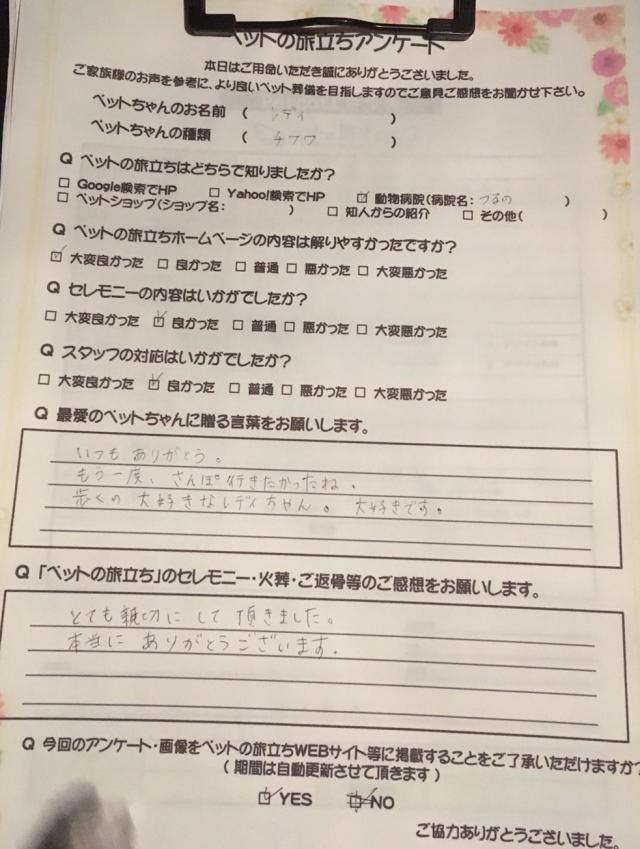 ペットの旅立ちアンケート
本日はご用命いただき誠にありがとうございました。
ご家族様のお声を参考に、より良いペット葬儀を目指しますのでご意見ご感想をお聞かせ下さい。
ペットちゃんのお名前 ( レディ )
ペットちゃんの種類 ( チワワ )
Q ペットの旅立ちはどちらで知りましたか?
□ Google検索でHP □ Yahoo!検索でHP ☑ 動物病院(病院名: つるの )
□ ペットショップ(ショップ名: ) □ 知人からの紹介 □ その他( )
Q ペットの旅立ちホームページの内容は解りやすかったですか?
☑ 大変良かった □ 良かった □ 普通 □ 悪かった □ 大変悪かった
Q セレモニーの内容はいかがでしたか?
□ 大変良かった ☑ 良かった □ 普通 □ 悪かった □ 大変悪かった
Q スタッフの対応はいかがでしたか?
□ 大変良かった ☑ 良かった □ 普通 □ 悪かった □ 大変悪かった
Q 最愛のペットちゃんに贈る言葉をお願いします。
いつも ありがとう。
もう一度、さんぽ行きたかったね。
歩くの 大好きなレディちゃん。 大好きです。
Q 「ペットの旅立ち」のセレモニー・火葬・ご返骨等のご感想をお願いします。
とても親切に して 頂きました。
本当に ありがとうございます.
Q 今回のアンケート・画像をペットの旅立ちWEBサイト等に掲載することをご了承いただけますか?
( 期間は自動更新させて頂きます )
☑ YES ☑ NO
ご協力ありがとうございました。